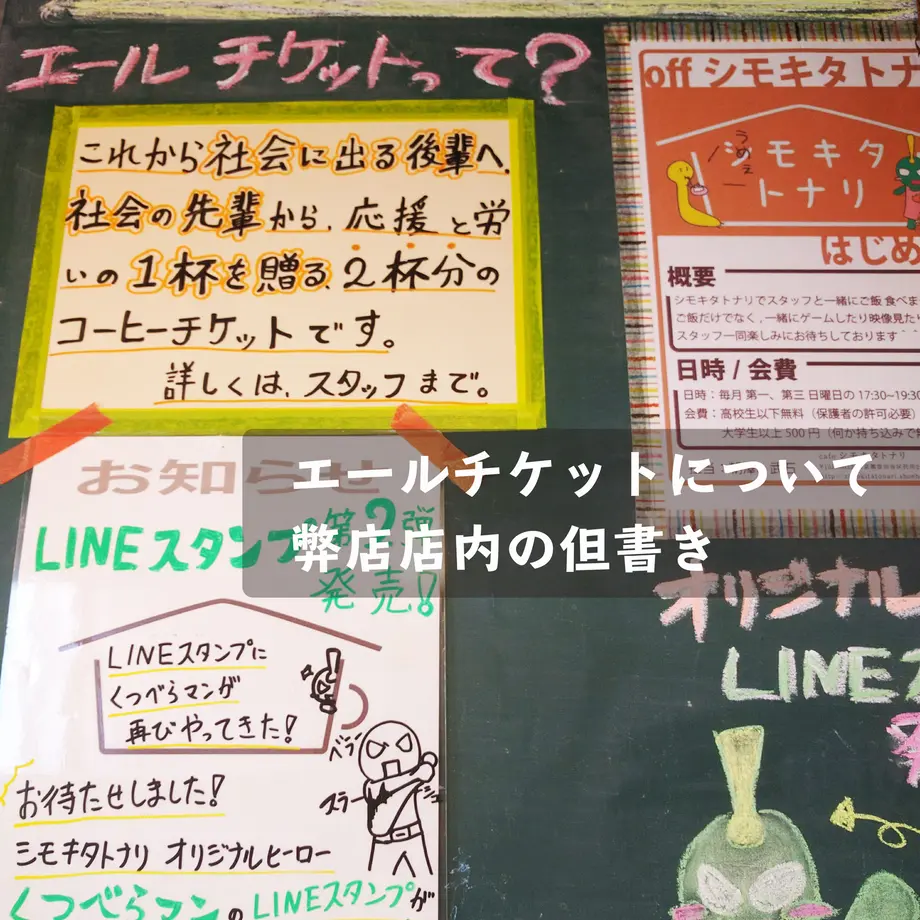 エールチケットって?
これから社会に出る後輩へ、
社会の先輩から、応援と労
いの1杯を贈る、2杯分の
コーヒーチケットです。
詳しくは、スタッフまで。
off シモキタトナ
うめぇ
シモキタ
トナリ
はじめ
概要
シモキタトナリでスタッフと一緒にご飯食べま
ご飯だけでなく、一緒にゲームしたり映像見たり
スタッフ一同楽しみにお待ちしております
日時 / 会費
日時:毎月 第一、第三 日曜日の 17:30~19:30
会費:高校生以下無料(保護者の許可必要)
大学生以上 500円(何か持ち込みで
cafe シモキタトナリ
エールチケットについて
弊店店内の但書き
お知らせ
LINEスタンプ第2弾
発売!
LINEスタンプに
くつべらマンが
再びやってきた!
ベラ
スラー
シュ
お待たせしました!
シモキタトナリ オリジナルヒーロー
くつべらマンのLINEスタンプが
オリジナル
LINEス